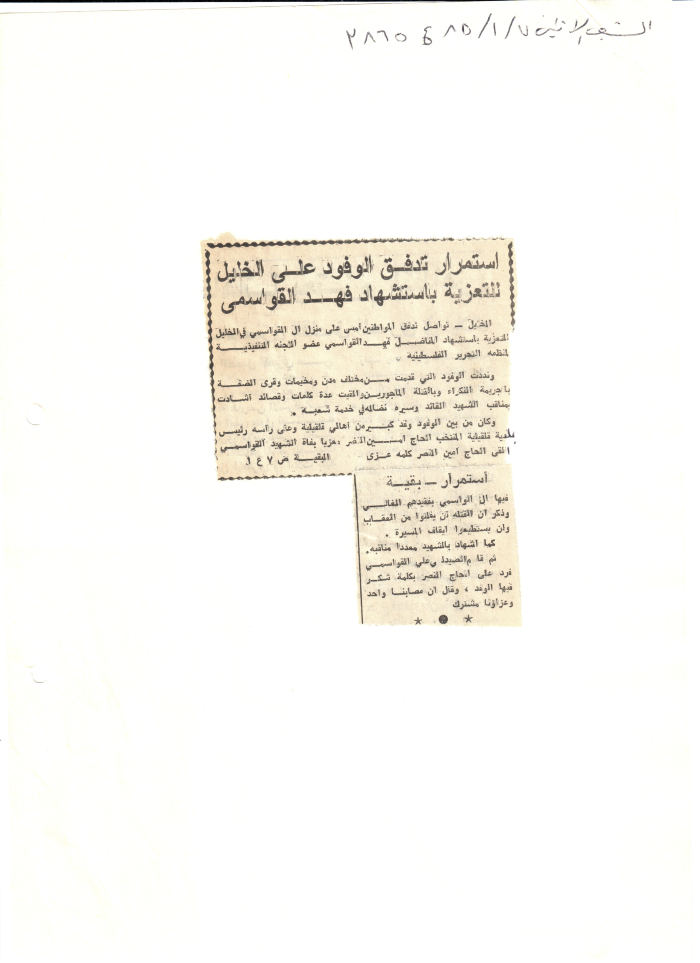 الشعب الاثنين ٨٥/١/٧ ع ٣٨٦٥
استمرار تدفق الوفود على الخليل
للتعزية باستشهاد فهد القواسمي
الخليل – تواصل تدفق المواطنين امس على منزل ال القواسمي في الخليل
للتعزية باستشهاد المناضل فهد القواسمي عضو اللجنه التنفيذية
لمنظمه التحرير الفلسطينيه
ونددت الوفود التي قدمت من مختلف مدن ومخيمات وقرى الضفة
بالجريمة النكراء وبالقتلة الماجورين والقيت عدة كلمات وقصائد اشادت
بمناقب الشهيد القائد وسيره نضاله في خدمة شعبة .
وكان من بين الوفود وفد كبير من اهالي قلقيلية وعلى راسه رئيس
بلدية قلقيلية المنتخب الحاج امين النصر معزيا بوفاة الشهيد القواسمي
القى الحاج امين النصر كلمه عزى
البقية ص ٧ ع ١
استمرار – بقية
فيها ال الواسمي بفقيدهم الغالي
وذكر ان القتله لن يفلتوا من العقاب
ولن يستطيعوا ايقاف المسيرة .
كما اشهاد بالشهيد معددا مناقبه .
ثم قام الصيدلي علي القواسمي
فرد على الحاج النصر بكلمة شكر
فيها الوفد ، وقال ان مصابنا واحد
وعزاؤنا مشترك